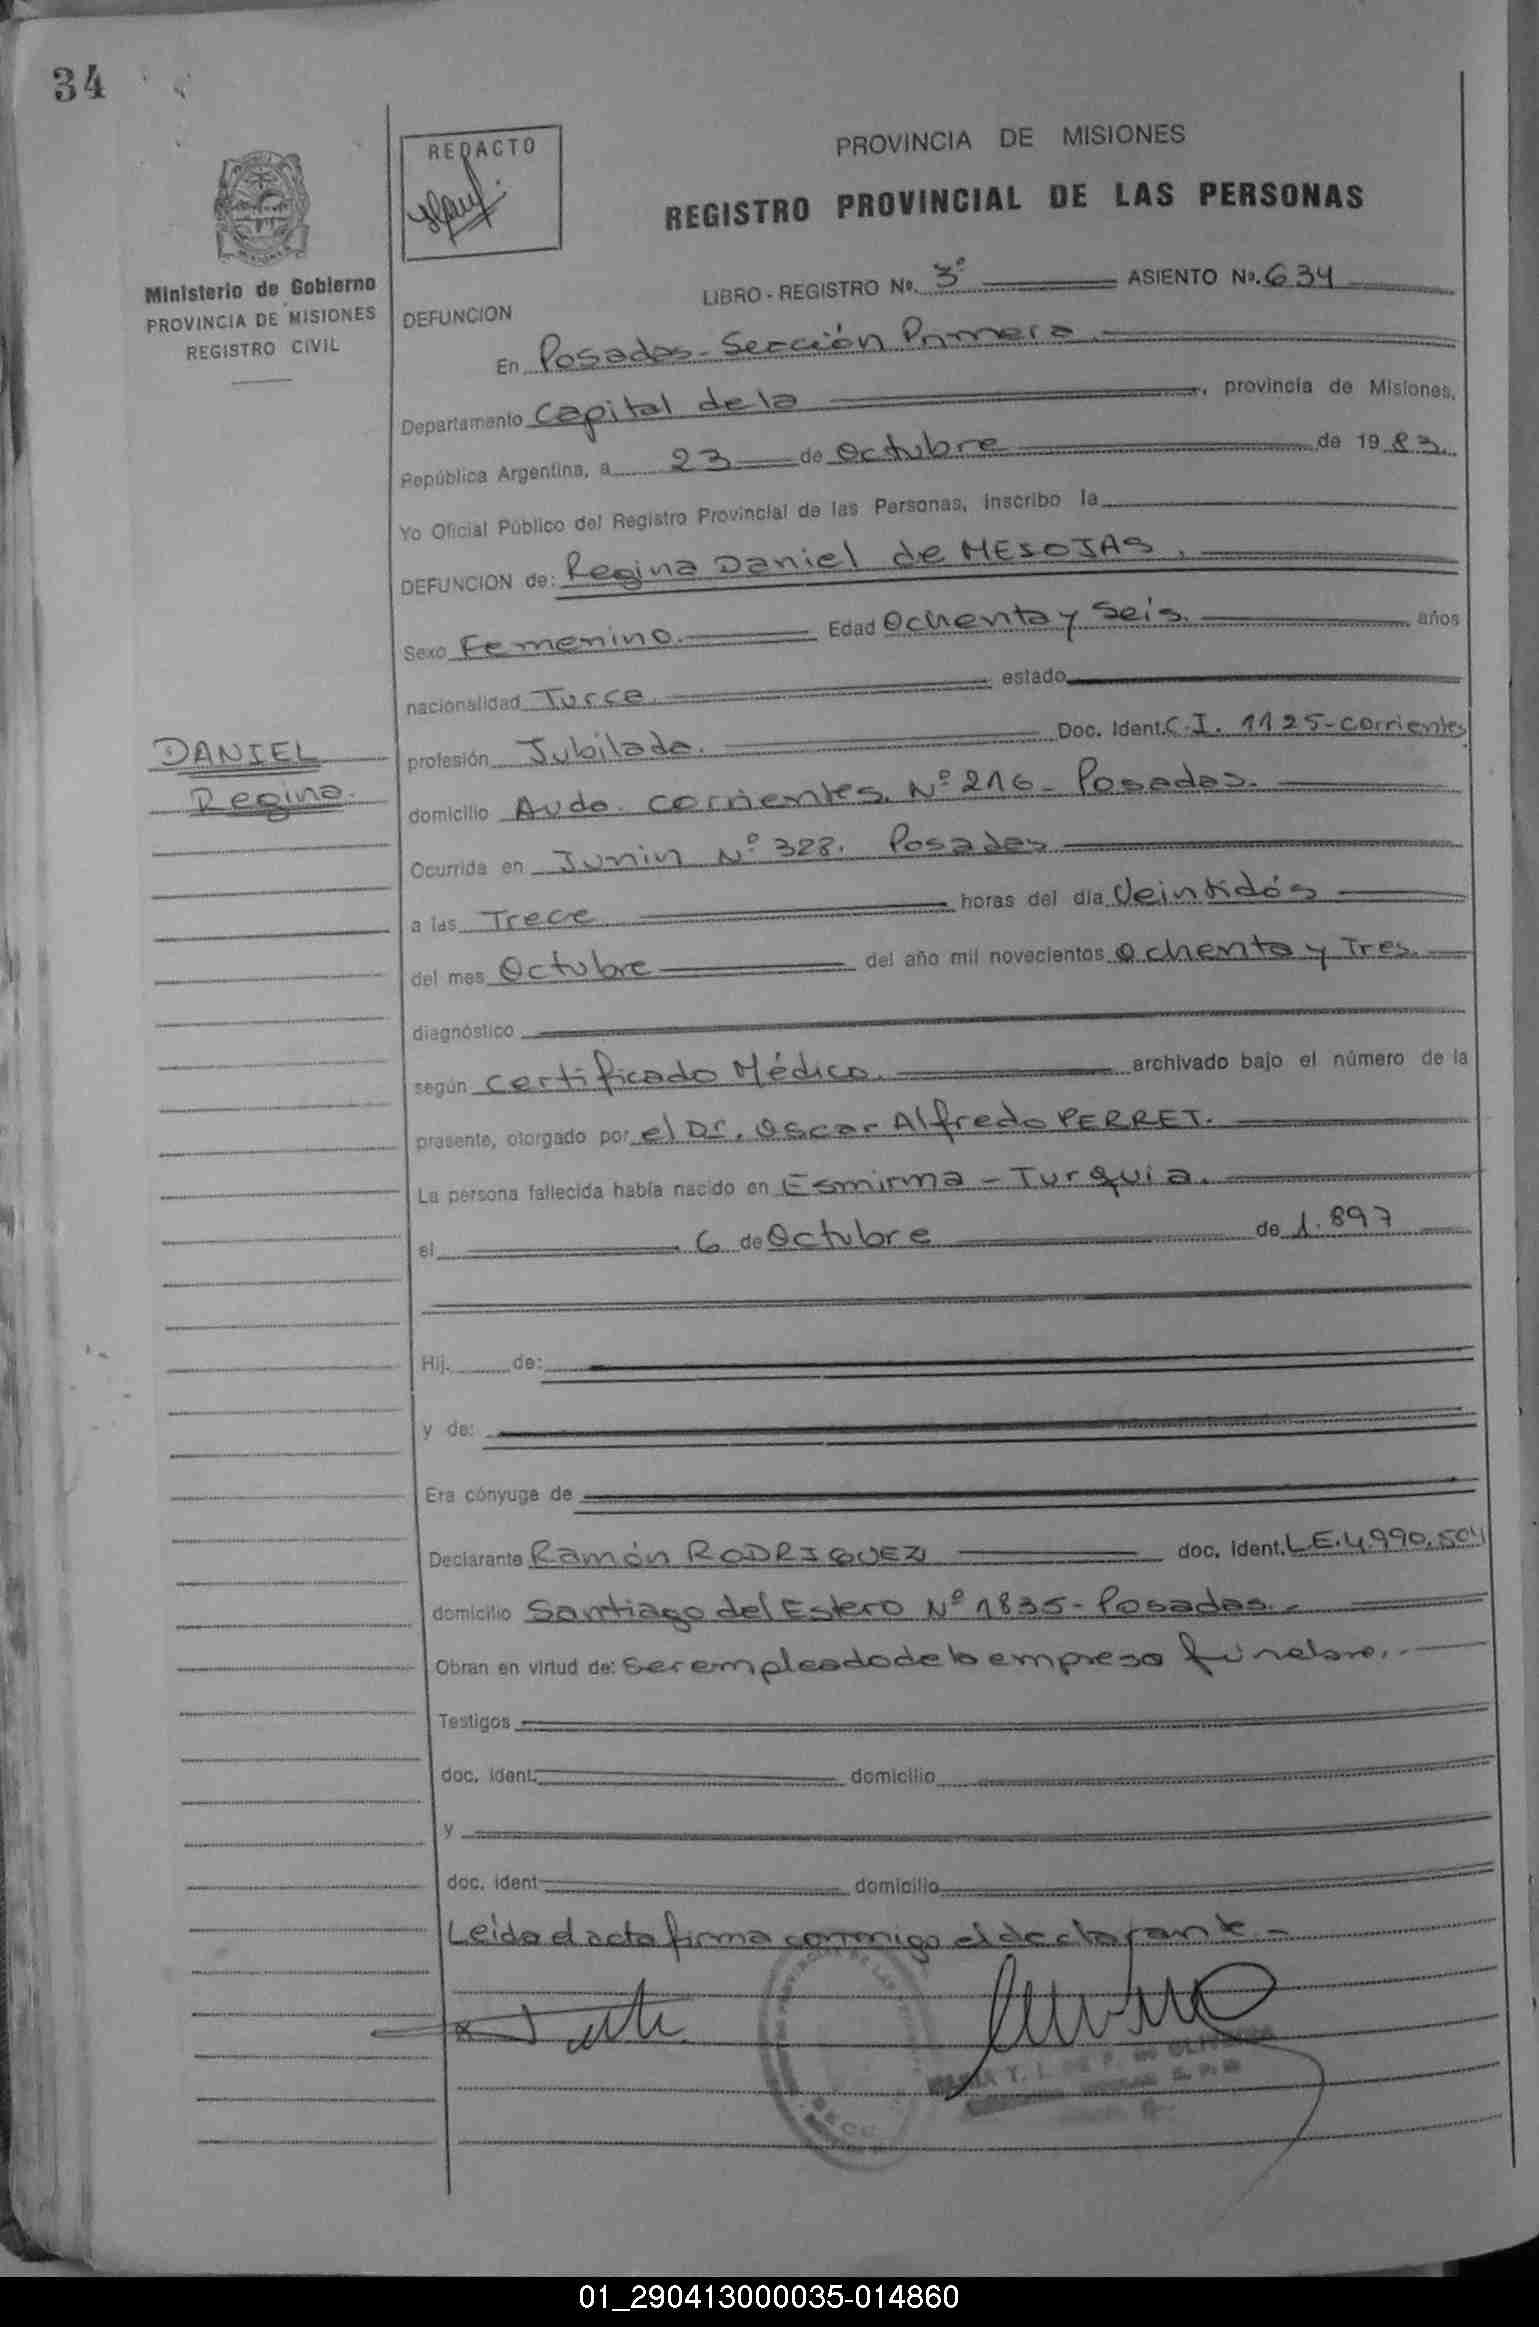 34
REDACTO
PROVINCIA DE MISIONES
REGISTRO PROVINCIAL DE LAS PERSONAS
MISIONES
Ministerio de Gobierno
PROVINCIA DE MISIONES
REGISTRO CIVIL
LIBRO - REGISTRO No. 3º ASIENTO No. 634
DEFUNCION
En Posadas - Sección Primera
Departamento Capital de la , provincia de Misiones,
República Argentina, a 23 de Octubre de 1983.
Yo Oficial Público del Registro Provincial de las Personas, inscribo la
DEFUNCION de: Regina Daniel de MESOJAS.
Sexo Femenino. Edad Ochenta y Seis. años
nacionalidad Turca. estado
DANIEL
Regina.
profesión Jubilada. Doc. Ident. C.I. 1125-Corrientes
domicilio Avda. Corrientes. Nº 216 - Posadas.
Ocurrida en Junin Nº 328. Posadas
a las Trece horas del día Veintidós
del mes Octubre del año mil novecientos Ochenta y Tres.
diagnóstico
según Certificado Médico. archivado bajo el número de la
presente, otorgado por el Dr. Oscar Alfredo PERRET.
La persona fallecida había nacido en Esmirma - Turquia.
el 6 de Octubre de 1.897
Hij. de:
y de:
Era cónyuge de
Declarante Ramón RODRIGUEZ doc. ident. L.E. 4.990.504
domicilio Santiago del Estero Nº 1835 - Posadas. -
Obran en virtud de: ser empleado de la empresa fúnebre. -
Testigos
doc. ident. domicilio
y
doc. ident domicilio
Leida el acta firma conmigo el declarante. -
01_290413000035-014860